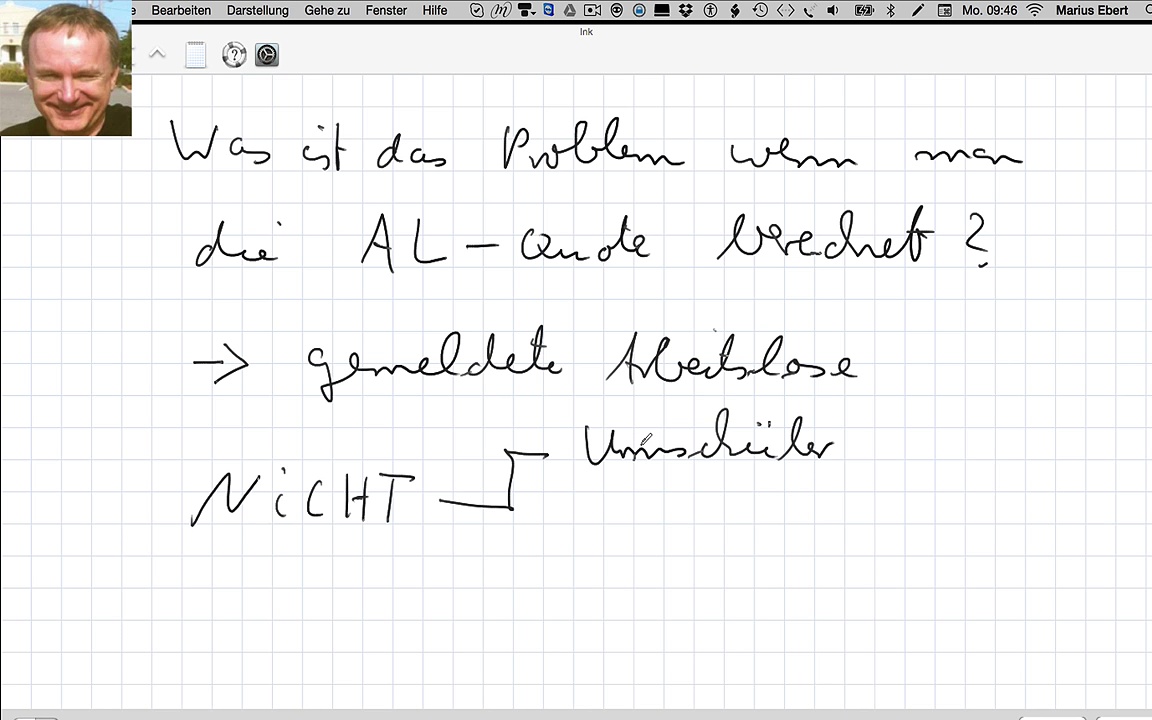 Bearbeiten Darstellung Gehe zu Fenster Hilfe Mo. 09:46 Marius Ebert
Ink
Was ist das Problem wenn man
die AL-Quote berechnet?
→ gemeldete Arbeitslose
Umschüler
NiCHT